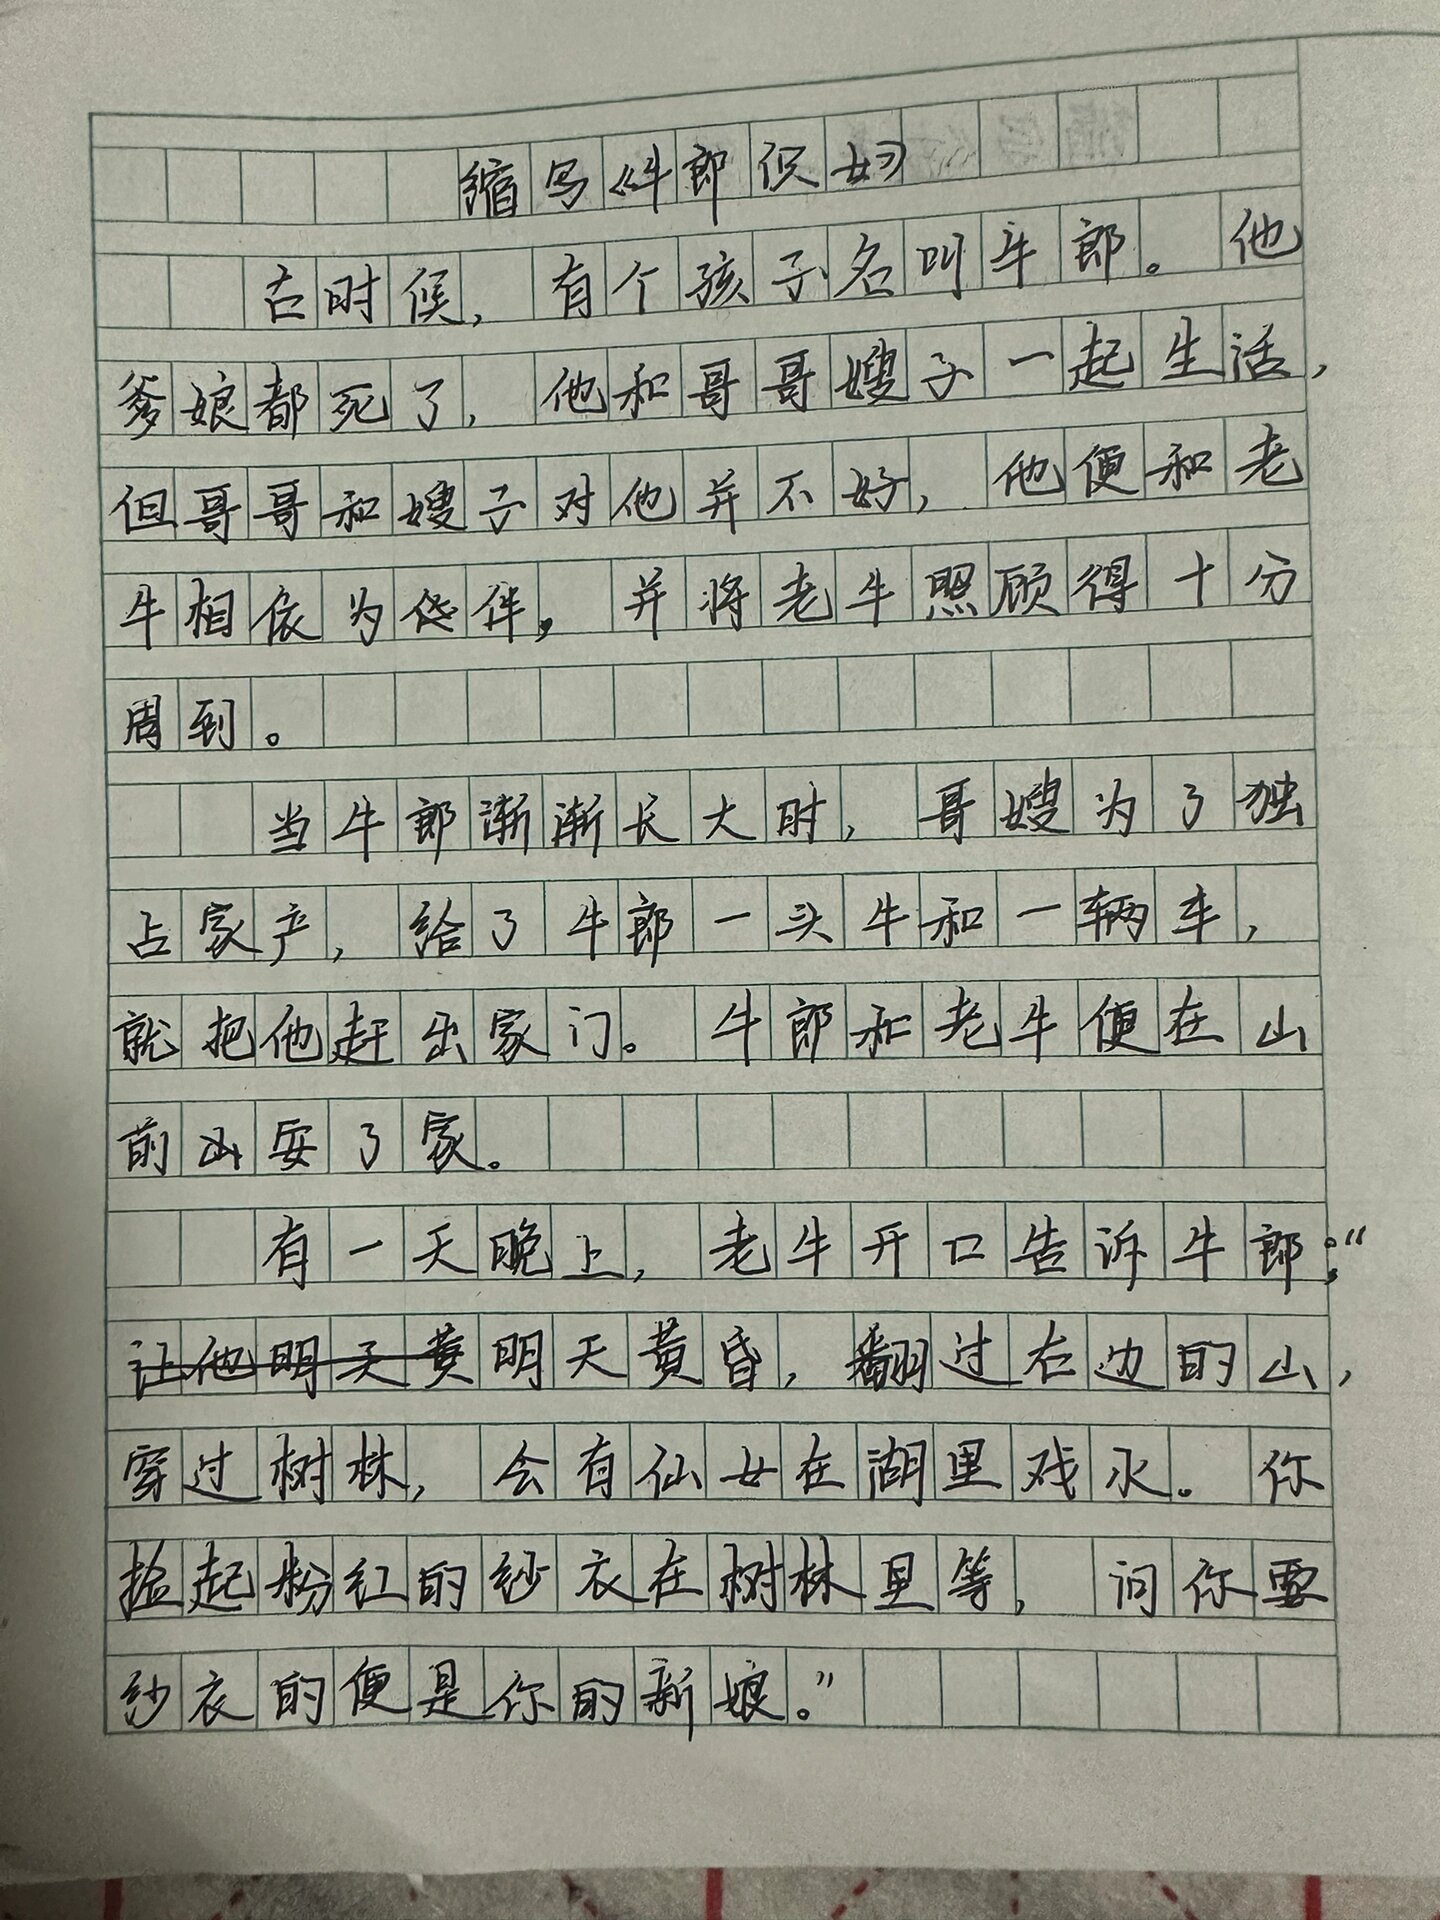 缩写《牛郎织女》
古时候，有个孩子名叫牛郎。他
爹娘都死了，他和哥哥嫂子一起生活，
但哥哥和嫂子对他并不好，他便和老
牛相依为伴，并将老牛照顾得十分
周到。
当牛郎渐渐长大时，哥嫂为了独
占家产，给了牛郎一头牛和一辆车，
就把他赶出家门。牛郎和老牛便在山
前安了家。
有一天晚上，老牛开口告诉牛郎：“
让他明天黄明天黄昏，翻过右边的山，
穿过树林，会有仙女在湖里戏水。你
捡起粉红的纱衣在树林里等，问你要
纱衣的便是你的新娘。”